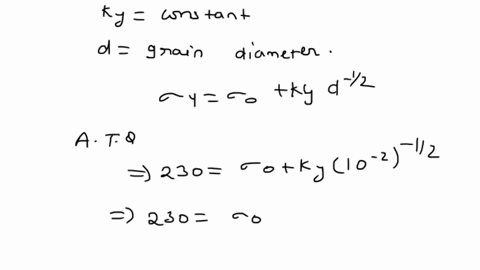 ky = constant
d = grain diameter.
σy = σo + ky d^-1/2
A.T.Q
⇒ 230 = σo + ky (10^-2)^-1/2
⇒ 230 = σo